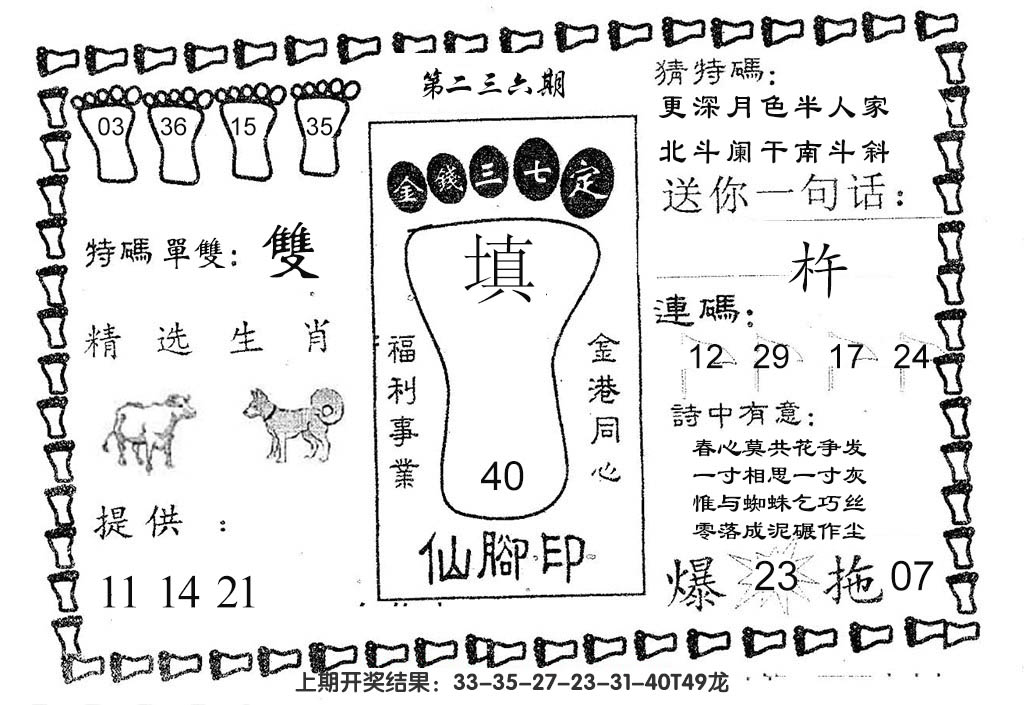 第二三六期
03 36 15 35
特碼單雙：雙
精选生肖
提供：
11 14 21
金錢三七定
填
福利事業
金港同心
40
仙腳印
猜特碼：
更深月色半人家
北斗阑干南斗斜
送你一句话：
杵
連碼：
12 29 17 24
詩中有意：
春心莫共花争发
一寸相思一寸灰
惟与蜘蛛乞巧丝
零落成泥碾作尘
爆 23 拖 07
上期开奖结果：33-35-27-23-31-40T49龙